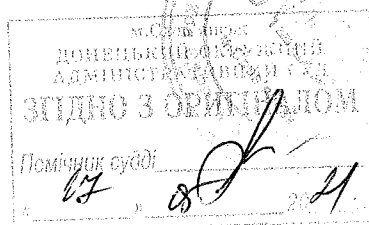 м.Слов'янськ
ДОНЕЦЬКИЙ ОКРУЖНИЙ
АДМІНІСТРАТИВНИЙ СУД
ЗГІДНО З ОРИГІНАЛОМ
Помічник судді
17
2021